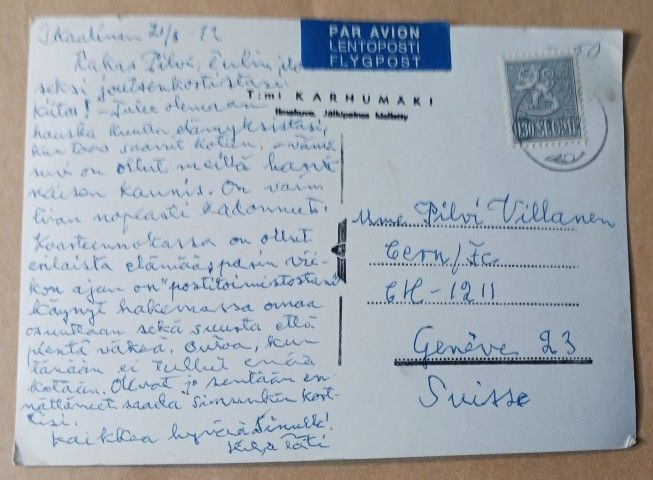 21/8 - 72
Rakas Pilvi, Tulin jo
seksi joutsenkortistasi
Kiitos! - Tulee olemaan
hauska kuulla elämyksistäsi,
kun taas saavut kotiin. - Tämä
suvi on ollut meillä harvi-
naisen kaunis. On vain
liian nopeasti kadonnut.
on ollut
erilaista elämää, parin vii-
kon ajan on "postitoimistostani"
käynyt hakemassa omaa
osuuttaan sekä suurta että
pientä väkeä. Outoa, kun
tänään ei tullut enää
ketään. Olivat jo sentään en-
nättäneet saada Sinunkin kort-
tisi.
Kaikkea hyvää Sinulle!
Täti
PAR AVION
LENTOPOSTI
FLYGPOST
T:mi KARHUMÄKI
Ilmakuva. Jälkipainos kielletty
1,30 SUOMI
Mme Pilvi Villanen
Cern/
CH-1211
Genève 23
Suisse